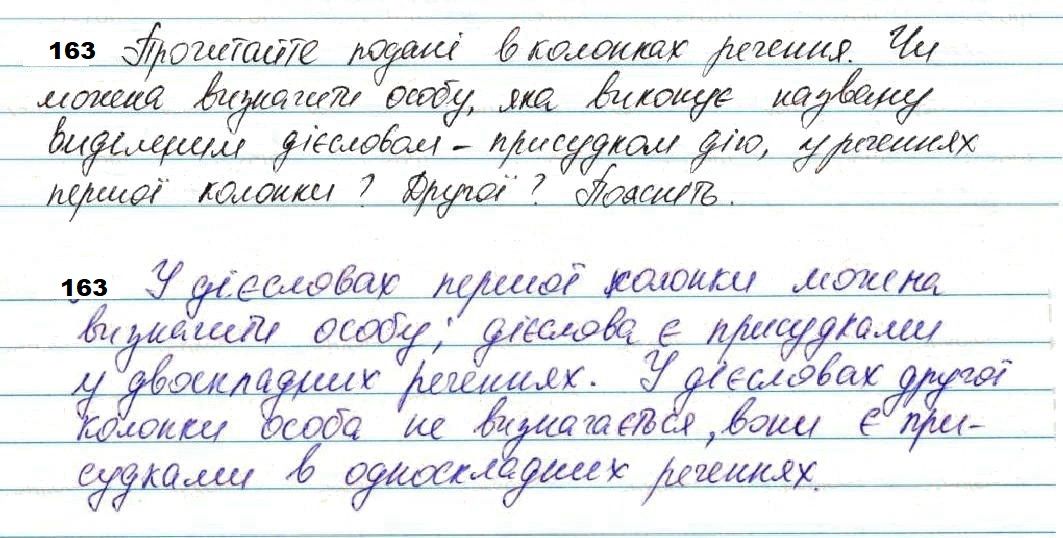 163 Прочитайте подані в колонках речення. Чи
можна визначити особу, яка виконує названу
виділеним дієсловом – присудком дію, у реченнях
першої колонки? Другої? Поясніть.
163 У дієсловах першої колонки можна
визначити особу; дієслова є присудками
у двоскладних реченнях. У дієсловах другої
колонки особа не визначається, вони є при-
судками в односкладних реченнях.